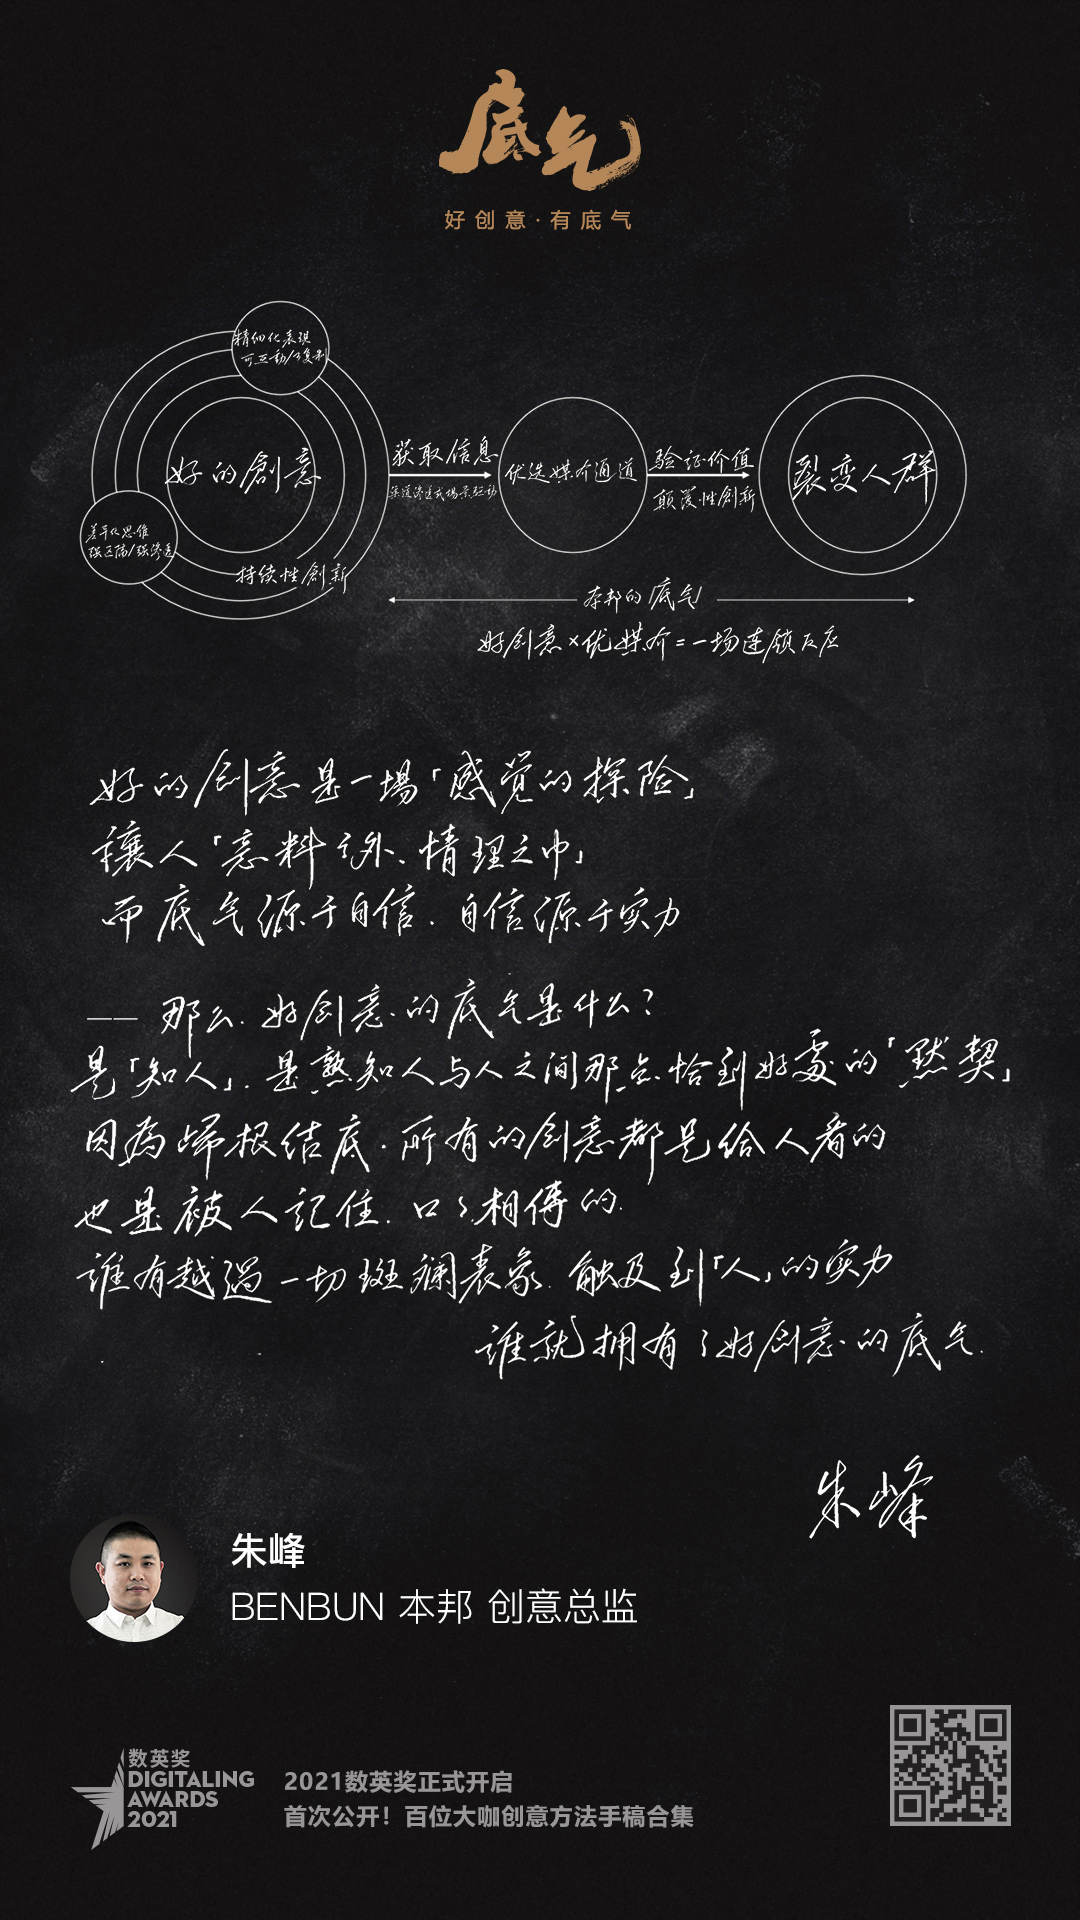 底气
好创意·有底气
精细化表现
可互动/可复制
好的創意
差异化思维
强区隔/强渗透
持续性創新
获取信息
渠道渗透式场景驱动
优选媒介通道
验证价值
颠覆性创新
裂变人群
本邦的底气
好创意×优媒介=一场连锁反应
好的创意是一場「感觉的探险」
讓人「意料之外、情理之中」
而底气源于自信.自信源于实力
—— 那么.好创意的底气是什么?
是「知人」.是熟知人与人之间那点恰到好處的「默契」
因為归根结底.所有的创意都是给人看的
也是被人記住.口口相傳的.
誰有越過一切斑斓表象.触及到「人」的实力
誰就拥有了好创意的底气.
朱峰
朱峰
BENBUN 本邦 创意总监
数英奖
DIGITALING
AWARDS
2021
2021数英奖正式开启
首次公开！百位大咖创意方法手稿合集